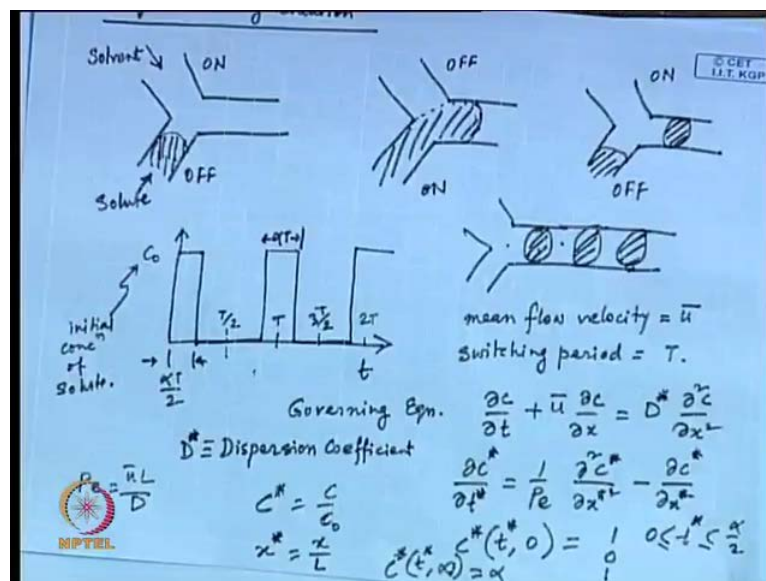 Solvent
ON
OFF
ON
© CET
I.I.T. KGP
Solute
OFF
ON
OFF
C₀
←αT→
initial
concⁿ
of
solute.
αT/2
T/2
T
3T/2
2T
t
mean flow velocity = ū
switching period = T.
Governing Eqn. ∂c/∂t + ū ∂c/∂x = D* ∂²c/∂x²
D* ≡ Dispersion Coefficient
Pe = ūL/D
∂c*/∂t* = 1/Pe ∂²c*/∂x*² - ∂c*/∂x*
c* = c/c₀
x* = x/L
c*(t*, 0) = 1 0 ≤ t* ≤ α/2
0
c*(t*, ∞) = α
1
NPTEL